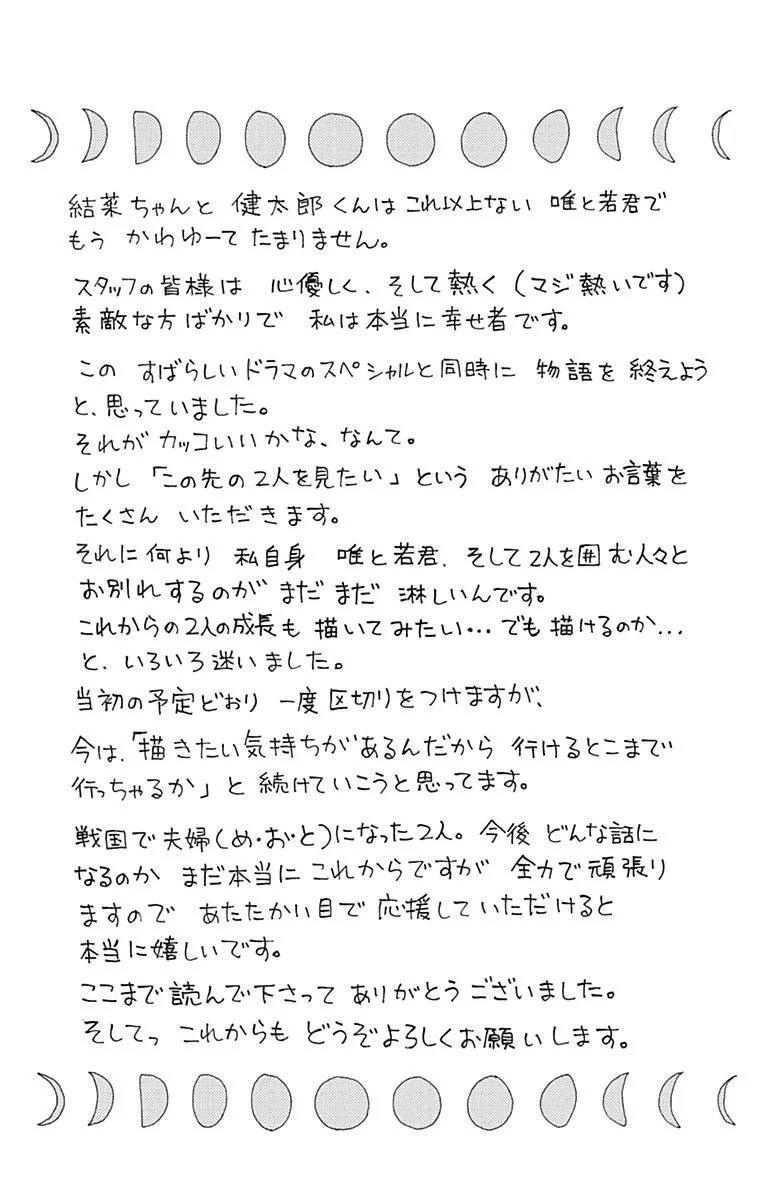 結菜ちゃんと 健太郎くんは これ以上ない 唯と若君で
もう かわゆーて たまりません。
スタッフの皆様は 心優しく、そして熱く(マジ熱いです)
素敵な方ばかりで 私は本当に幸せ者です。
この すばらしいドラマのスペシャルと同時に 物語を終えよう
と、思っていました。
それが カッコいいかな、なんて。
しかし「この先の2人を見たい」という ありがたいお言葉を
たくさん いただきます。
それに何より 私自身 唯と若君、そして2人を囲む人々と
お別れするのが まだまだ 淋しいんです。
これからの2人の成長も 描いてみたい…でも描けるのか…
と、いろいろ迷いました。
当初の予定どおり 一度区切りをつけますが、
今は、「描きたい気持ちがあるんだから 行けるとこまで
行っちゃるか」と 続けていこうと思ってます。
戦国で夫婦(め・お・と)になった2人。今後 どんな話に
なるのか まだ本当に これからですが 全力で頑張り
ますので あたたかい目で 応援していただけると
本当に嬉しいです。
ここまで読んで下さって ありがとうございました。
そしてっ これからも どうぞよろしくお願いします。